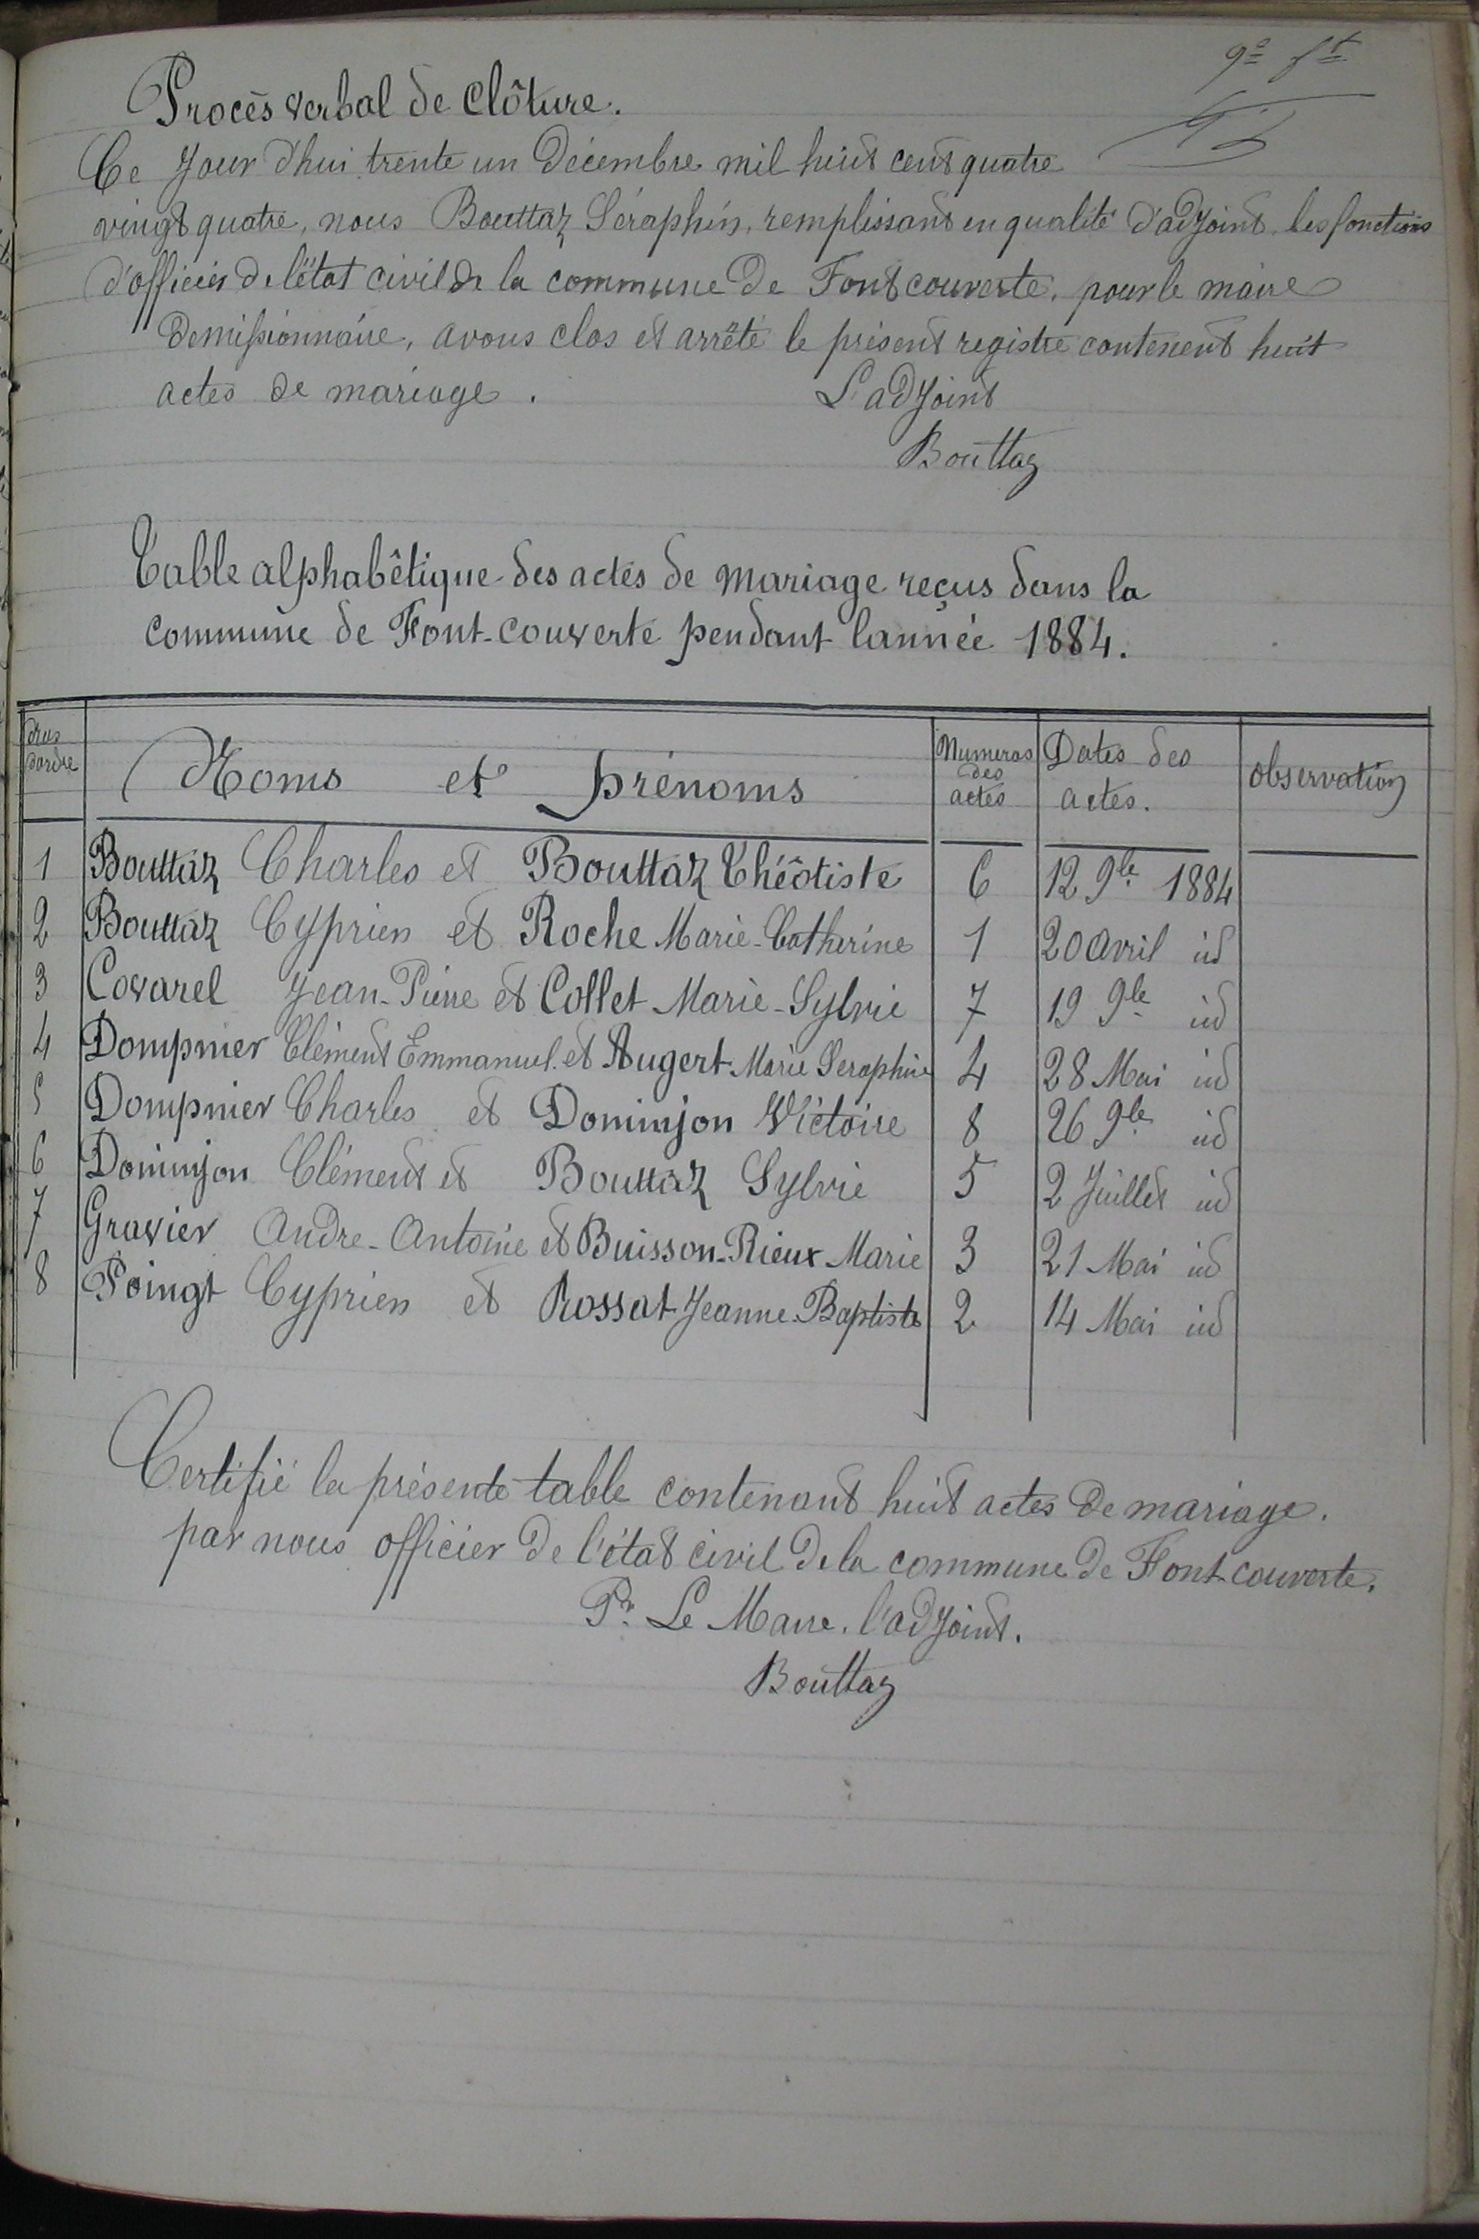 9e ft
Procès verbal de Clôture.
Ce Jour d'hui trente un Décembre mil huit cent quatre
vingt quatre, nous Bouttaz Séraphin, remplissant en qualité d'adjoint les fonctions
d'officier de l'état civil de la commune de Fontcouverte, pour le maire
démissionnaire, avons clos et arrêté le présent registre contenent huit
actes de mariage.
L'adjoint
Bouttaz
Table alphabêtique des actes de mariage reçus dans la
commune de Font-couverte pendant lannée 1884.
dordre Noms et prénoms Numeros des actes Dates des actes. observation
1 Bouttaz Charles et Bouttaz Théôtiste 6 12 9bre 1884
2 Bouttaz Cyprien et Roche Marie-Catherine 1 20 avril id
3 Covarel Jean-Pierre et Collet Marie-Sylvie 7 19 9bre id
4 Dompnier Clément Emmanuel et Augert Marie Seraphine 4 28 Mai id
5 Dompnier Charles et Dominjon Victoire 8 26 9bre id
6 Dominjon Clément et Bouttaz Sylvie 5 2 Juillet id
7 Gravier André-Antoine et Buisson-Rieux Marie 3 21 Mai id
8 Poingt Cyprien et Rossat Jeanne-Baptiste 2 14 Mai id
Certifié la présente table contenant huit actes de mariage.
par nous officier de l'état civil de la commune de Font-couverte.
Pr Le Maire, l'adjoint.
Bouttaz